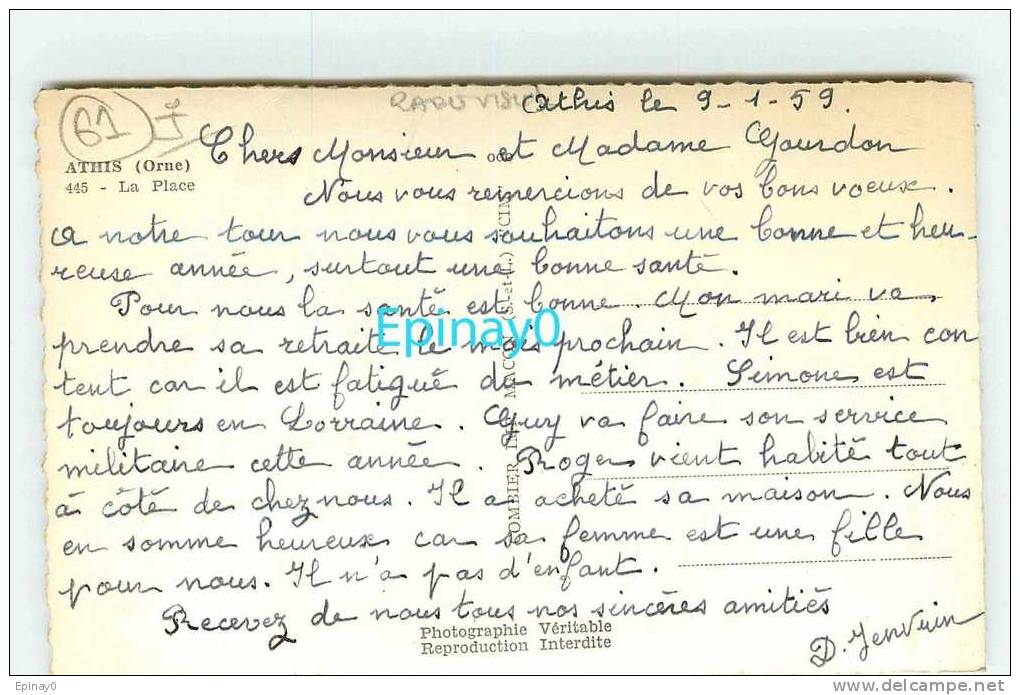 61
Athis le 9-1-59.
ATHIS (Orne)
445 - La Place
Chers Monsieur et Madame Gourdon
Nous vous remercions de vos bons voeux.
A notre tour nous vous souhaitons une bonne et heu-
reuse année, surtout une bonne santé.
Pour nous la santé est bonne. Mon mari va
prendre sa retraite le mois prochain. Il est bien con
tent car il est fatigué du métier. Simone est
toujours en Lorraine. Guy va faire son service
militaire cette année. Roger vient habité tout
à côté de chez nous. Il a acheté sa maison. Nous
en somme heureux car sa femme est une fille
pour nous. Il n'a pas d'enfant.
Recevez de nous tous nos sincères amitiés
D.
Photographie Véritable
Reproduction Interdite
COMBIER IMP. MACON (S.-et-L.)
Epinay0
Epinay0
www.delcampe.net